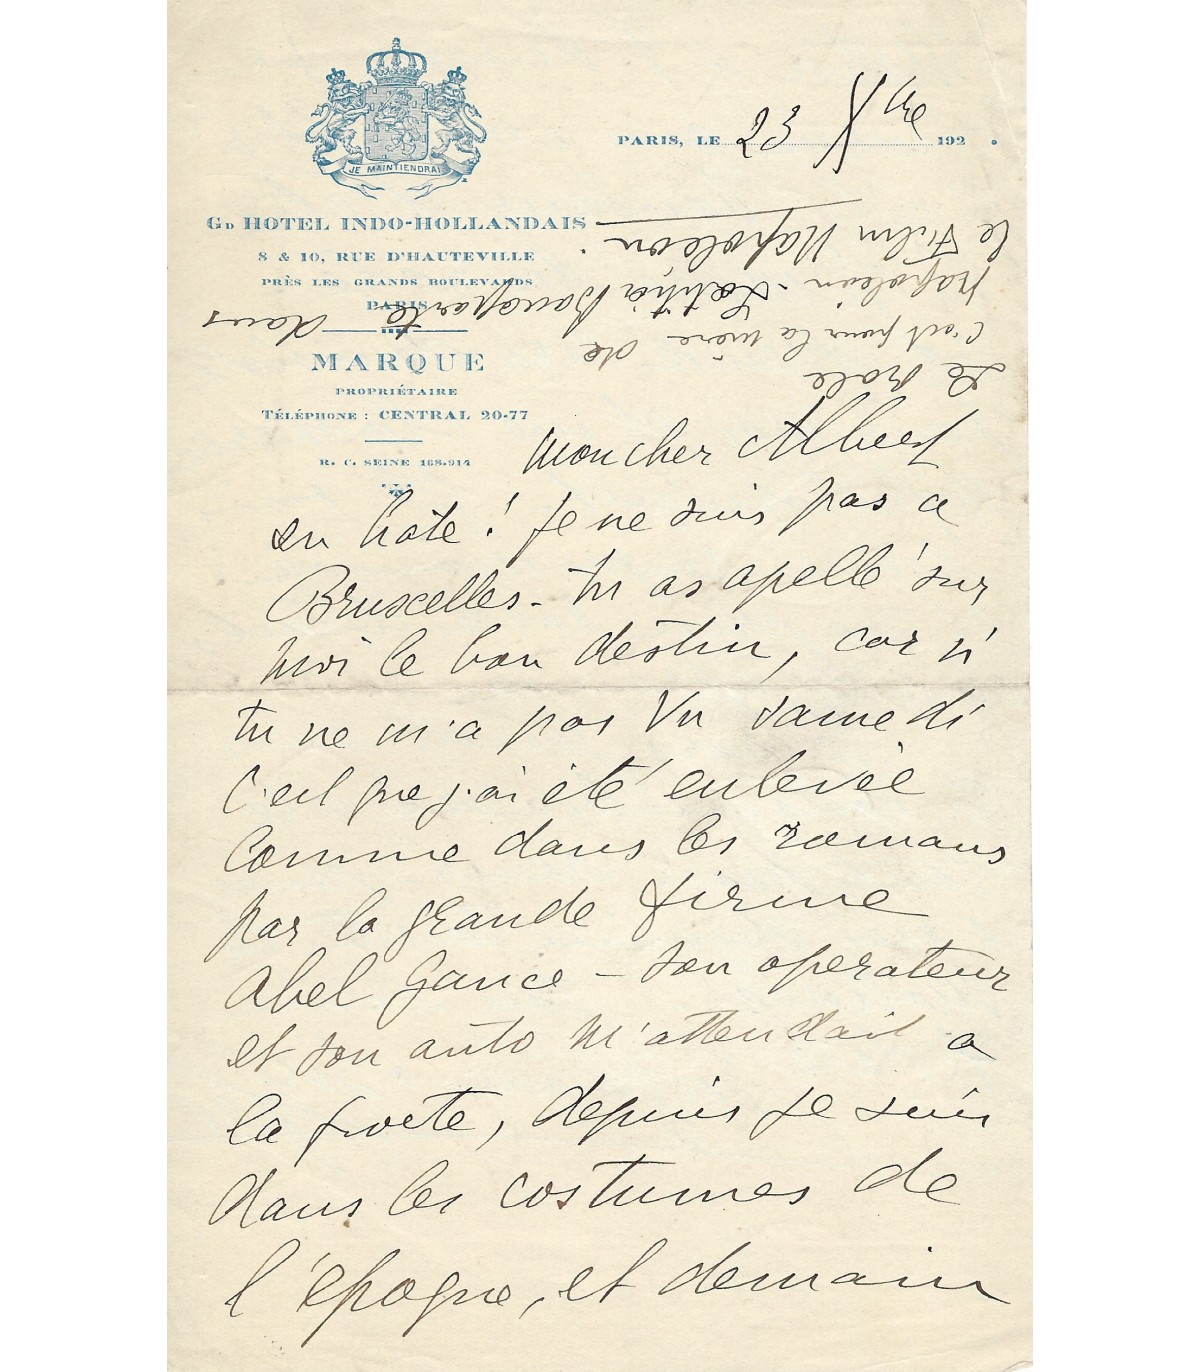 JE MAINTIENDRAI
PARIS, LE 23 Xbre 192 .
GD HOTEL INDO-HOLLANDAIS
8 & 10, RUE D'HAUTEVILLE
PRÈS LES GRANDS BOULEVARDS
PARIS
MARQUE
PROPRIÉTAIRE
TÉLÉPHONE : CENTRAL 20-77
R. C. SEINE 168.914
Le role
c'est pour la mère de
Napoleon - Lætitia Bonaparte dans
le Film Napoléon.
Mon cher Albert
en hâte ! je ne suis pas a
Bruxelles - tu as apellé sur
moi le bon destin, car si
tu ne m'a pas vu samedi
c'est que j'ai été enlevée
comme dans les romans
par la grande firme
Abel Gance - son operateur
et son auto m'attendait a
la porte, depuis je suis
dans les costumes de
l'epoque, et demain